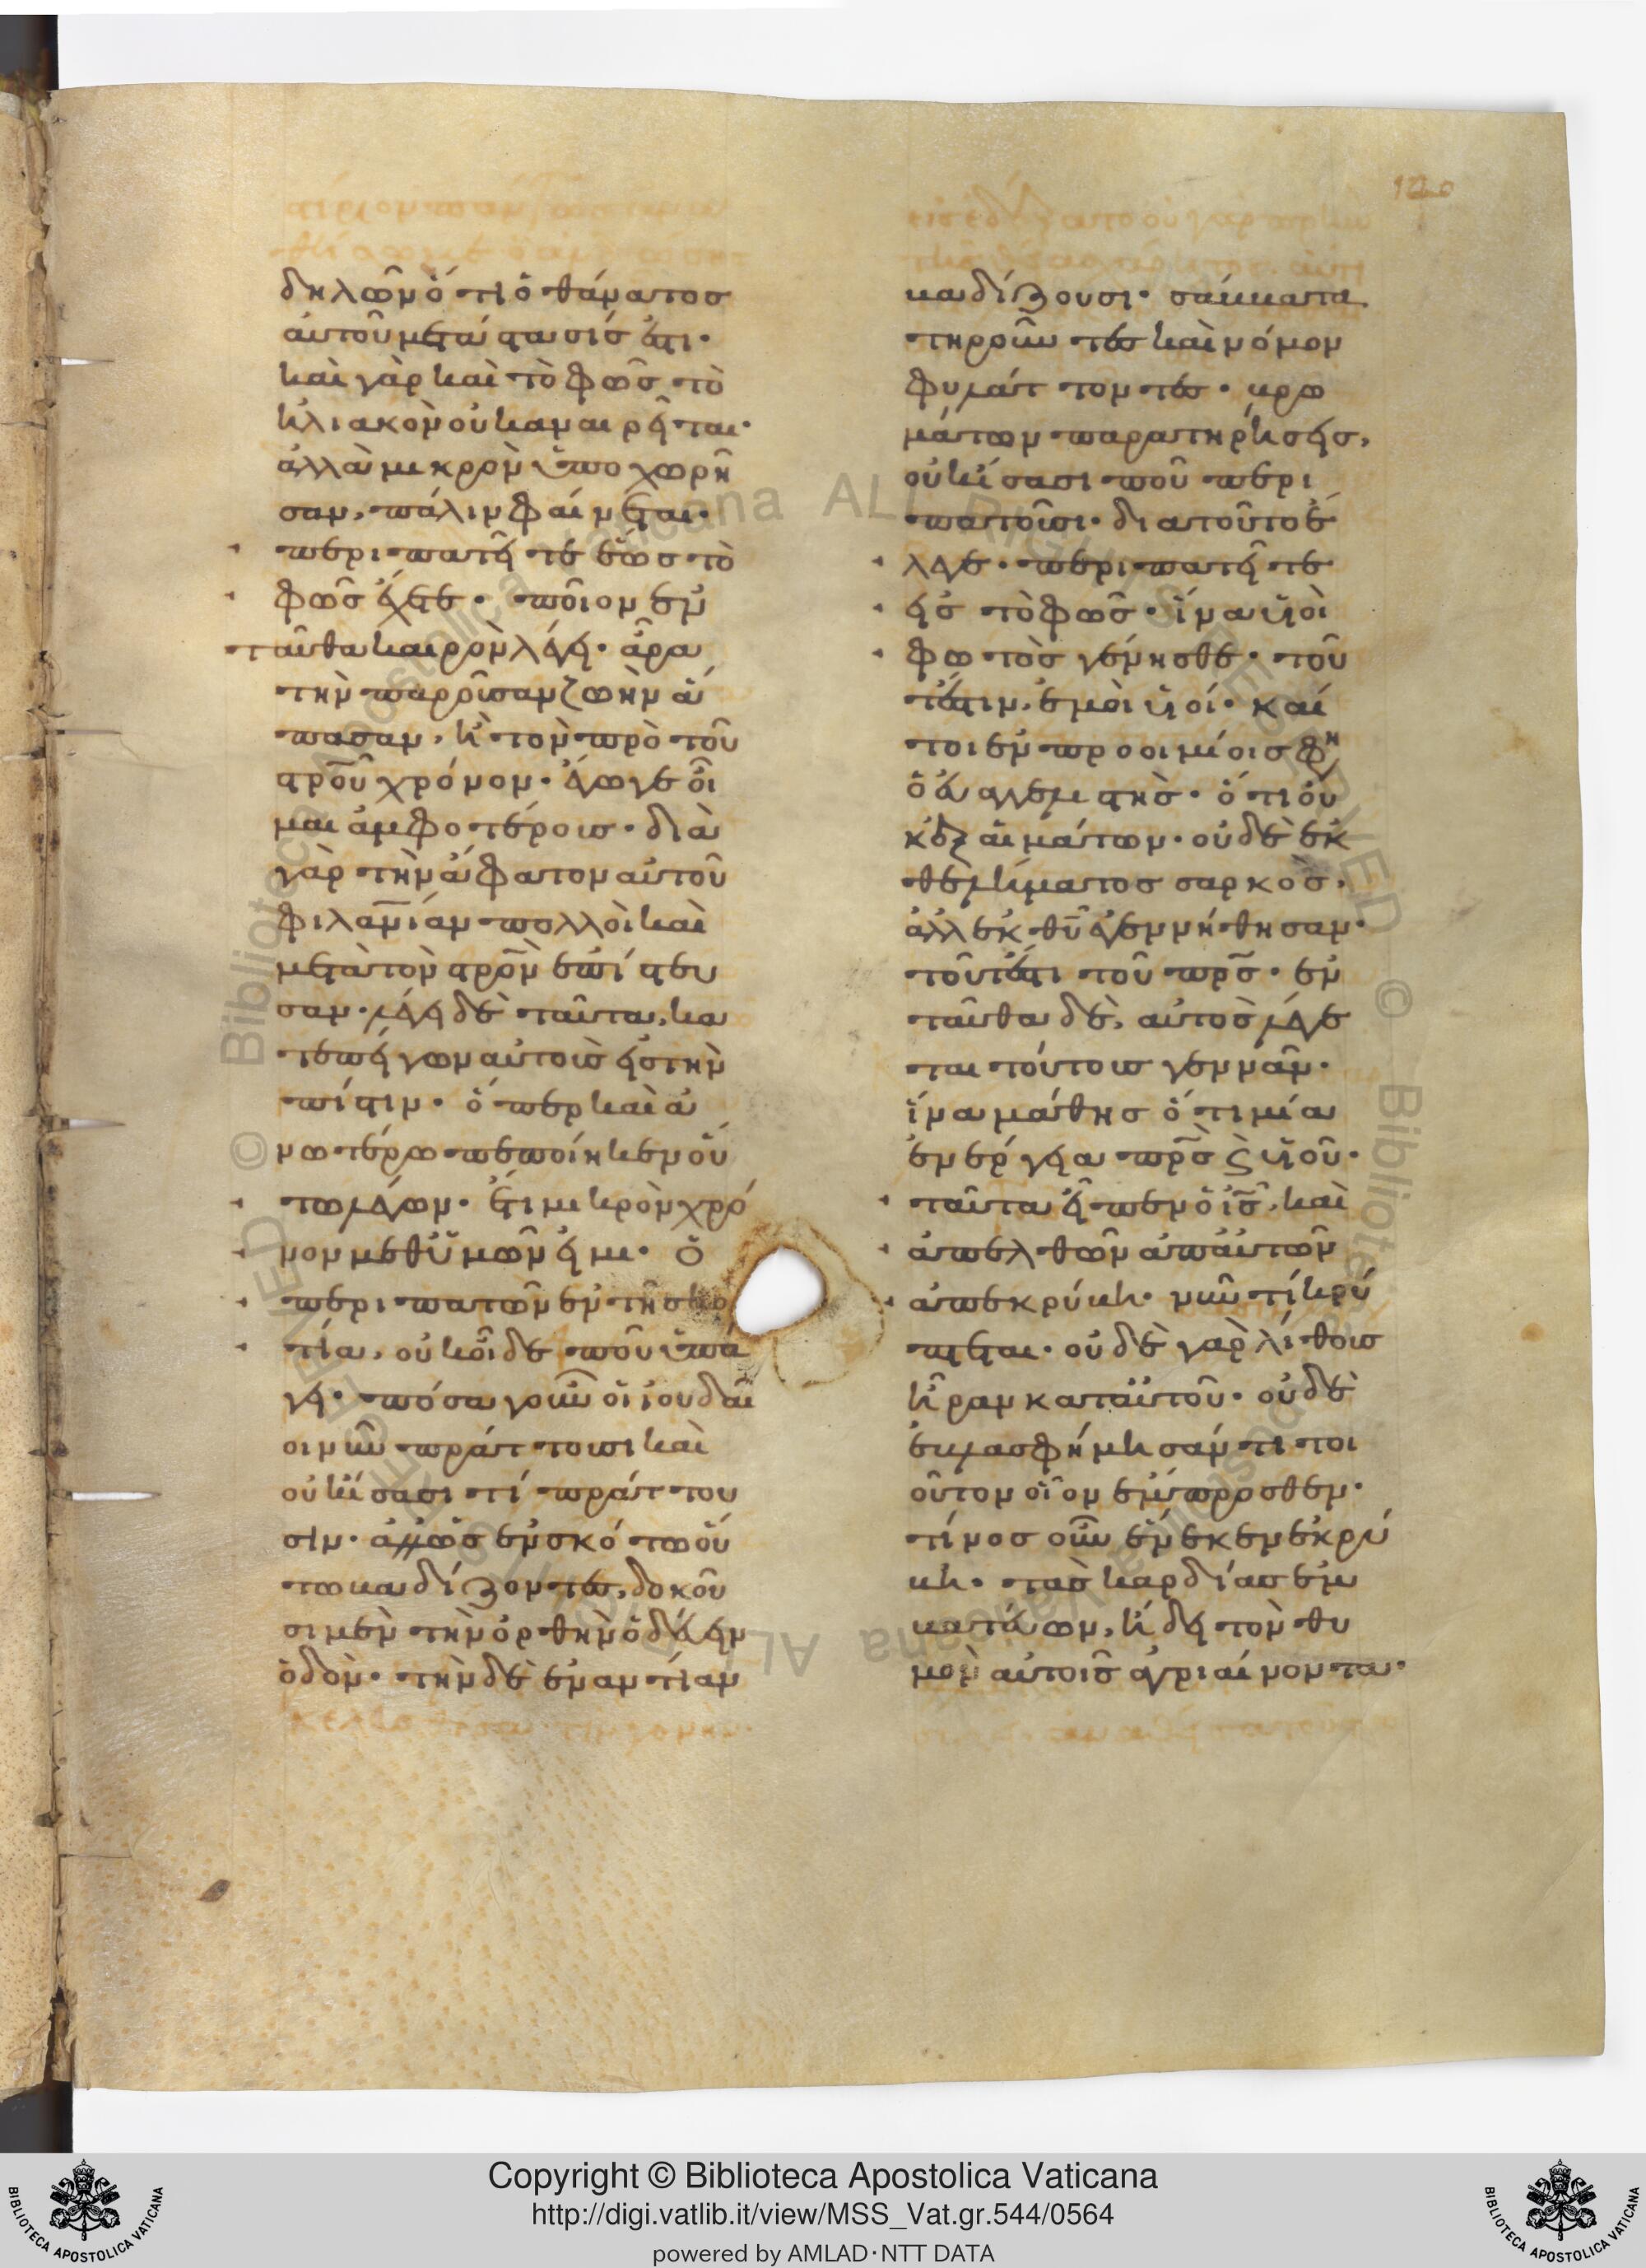 δηλῶν ὅτι ὁ θάνατος
αὐτοῦ μετάστασίς ἐστι·
καὶ γὰρ καὶ τὸ φῶς τὸ
ἡλιακὸν οὐκ ἀναιρεῖται·
ἀλλὰ μικρὸν ὑποχωρῆ
σαν, πάλιν φαίνεται·
περιπατεῖτε ἕως τὸ
φῶς ἔχετε· ποῖον ἐν
ταῦθα καιρὸν λέγει· ἆρα
τὴν παροῦσαν ζωὴν ἅ
πασαν, ἢ τὸν πρὸ τοῦ
στροῦ χρόνον· ἐγωγε οἶ
μαι ἀμφοτέροις· διὰ
γὰρ τὴν ἄφατον αὐτοῦ
φιλανίαν πολλοὶ καὶ
μετὰ τὸν στρον ἐπίστευ
σαν· λέγει δὲ ταῦτα, κα
τεπείγων αὐτοὺς εἰς τὴν
πίστιν· ὅπερ καὶ ἀ
νωτέρω πεποίηκεν οὕ
τω λέγων· ἔτι μικρὸν χρό
νον μεθ' ὑμῶν εἰμι· ὁ
περιπατῶν ἐν τῆ σκο
τία, οὐκ οἶδε ποῦ ὑπά
γει· πόσα γοῦν οἱ ἰουδαῖ
οι νῦν πράττουσι καὶ
οὐκ ἴσασι τί πράττου
σιν· ἀλλ' ὡς ἐν σκότω οὕ
τω βαδίζοντες, δοκοῦ
σι μὲν τὴν ὀρθὴν ὁδεύειν
ὁδὸν· τὴν δὲ ἐναντίαν
βαδίζουσι· σάββατα
τηροῦντες καὶ νόμον
φυλάττοντες· βρω
μάτων παρατηρήσεις,
οὐκ ἴσασι ποῦ περι
πατοῦσι· διὰ τοῦτο ἔ
λεγε· περιπατεῖτε
εἰς τὸ φῶς· ἵνα υἱοὶ
φωτὸς γένησθε· του
τέστιν, ἐμοὶ υἱοί· καί
τοι ἐν προοιμίοις φη
ὁ εὐαγγελιστὴς· ὅτι οὐ
κ ἐξ αἱμάτων· οὐδὲ ἐκ
θελήματος σαρκὸς,
ἀλλ' ἐκ θυ ἐγεννήθησαν·
τουτέστι τοῦ πρς· ἐν
ταῦθα δὲ, αὐτὸς λέγε
ται τούτους γεννᾶν·
ἵνα μάθης ὅτι μία
ἐνέργεια πρς ϗ υἱοῦ·
ταῦτα εἶπεν ὁ ις, καὶ
ἀπελθὼν ἀπ' αὐτῶν
ἀπεκρύβη· νῦν τί κρύ
πτεται· οὐδὲ γὰρ λίθους
ἦραν κατ' αὐτοῦ· οὐδὲ
ἐβλασφήμησάν τι τοι
οῦτον οἷον ἔμπροσθεν·
τίνος οὖν ἕνεκεν ἐκρύ
βη· τὰς καρδίας ἐμ
βατεύων, ἤδει τὸν θυ
μὸν αὐτοῖς ἀγριαίνοντα·
Copyright © Biblioteca Apostolica Vaticana
http://digi.vatlib.it/view/MSS_Vat.gr.544/0564
powered by AMLAD·NTT DATA
BIBLIOTECA APOSTOLICA VATICANA
BIBLIOTECA APOSTOLICA VATICANA